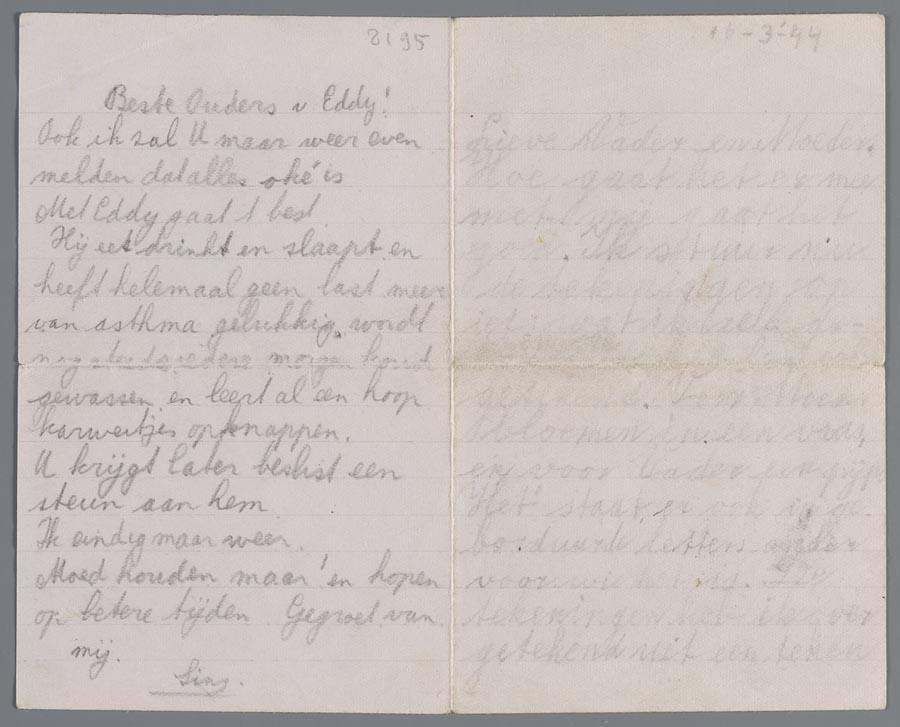 2195
Beste Ouders v Eddy!
Ook ik zal U maar weer even
melden dat alles oké is
Met Eddy gaat 't best
Hij eet drinkt en slaapt en
heeft helemaal geen last meer
van asthma gelukkig, wordt
iedere morge koud
gewassen en leert al een hoop
karweitjes opknappen.
U krijgt later beslist een
steun aan hem
Ik eindig maar weer.
Moed houden maar! en hopen
op betere tijden Gegroet van
mij.
16-3-'44
Lieve Vader en Moeder.
Hoe gaat het er mee
met mij gaat het
goed. Ik stuur nu
de tekeningen op
getekend. Voor Moeder
bloemen in een vaas,
en voor Vader een pijp
Het staat er ook in ge-
borduurde letters onder
voor wie het is. De
tekeningen heb ik over
getekend uit een teken